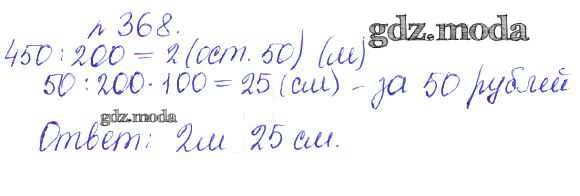 № 368.
gdz.moda
450 : 200 = 2 (ост. 50) (м)
50 : 200 · 100 = 25 (см) – за 50 рублей
gdz.moda
Ответ: 2м 25 см.